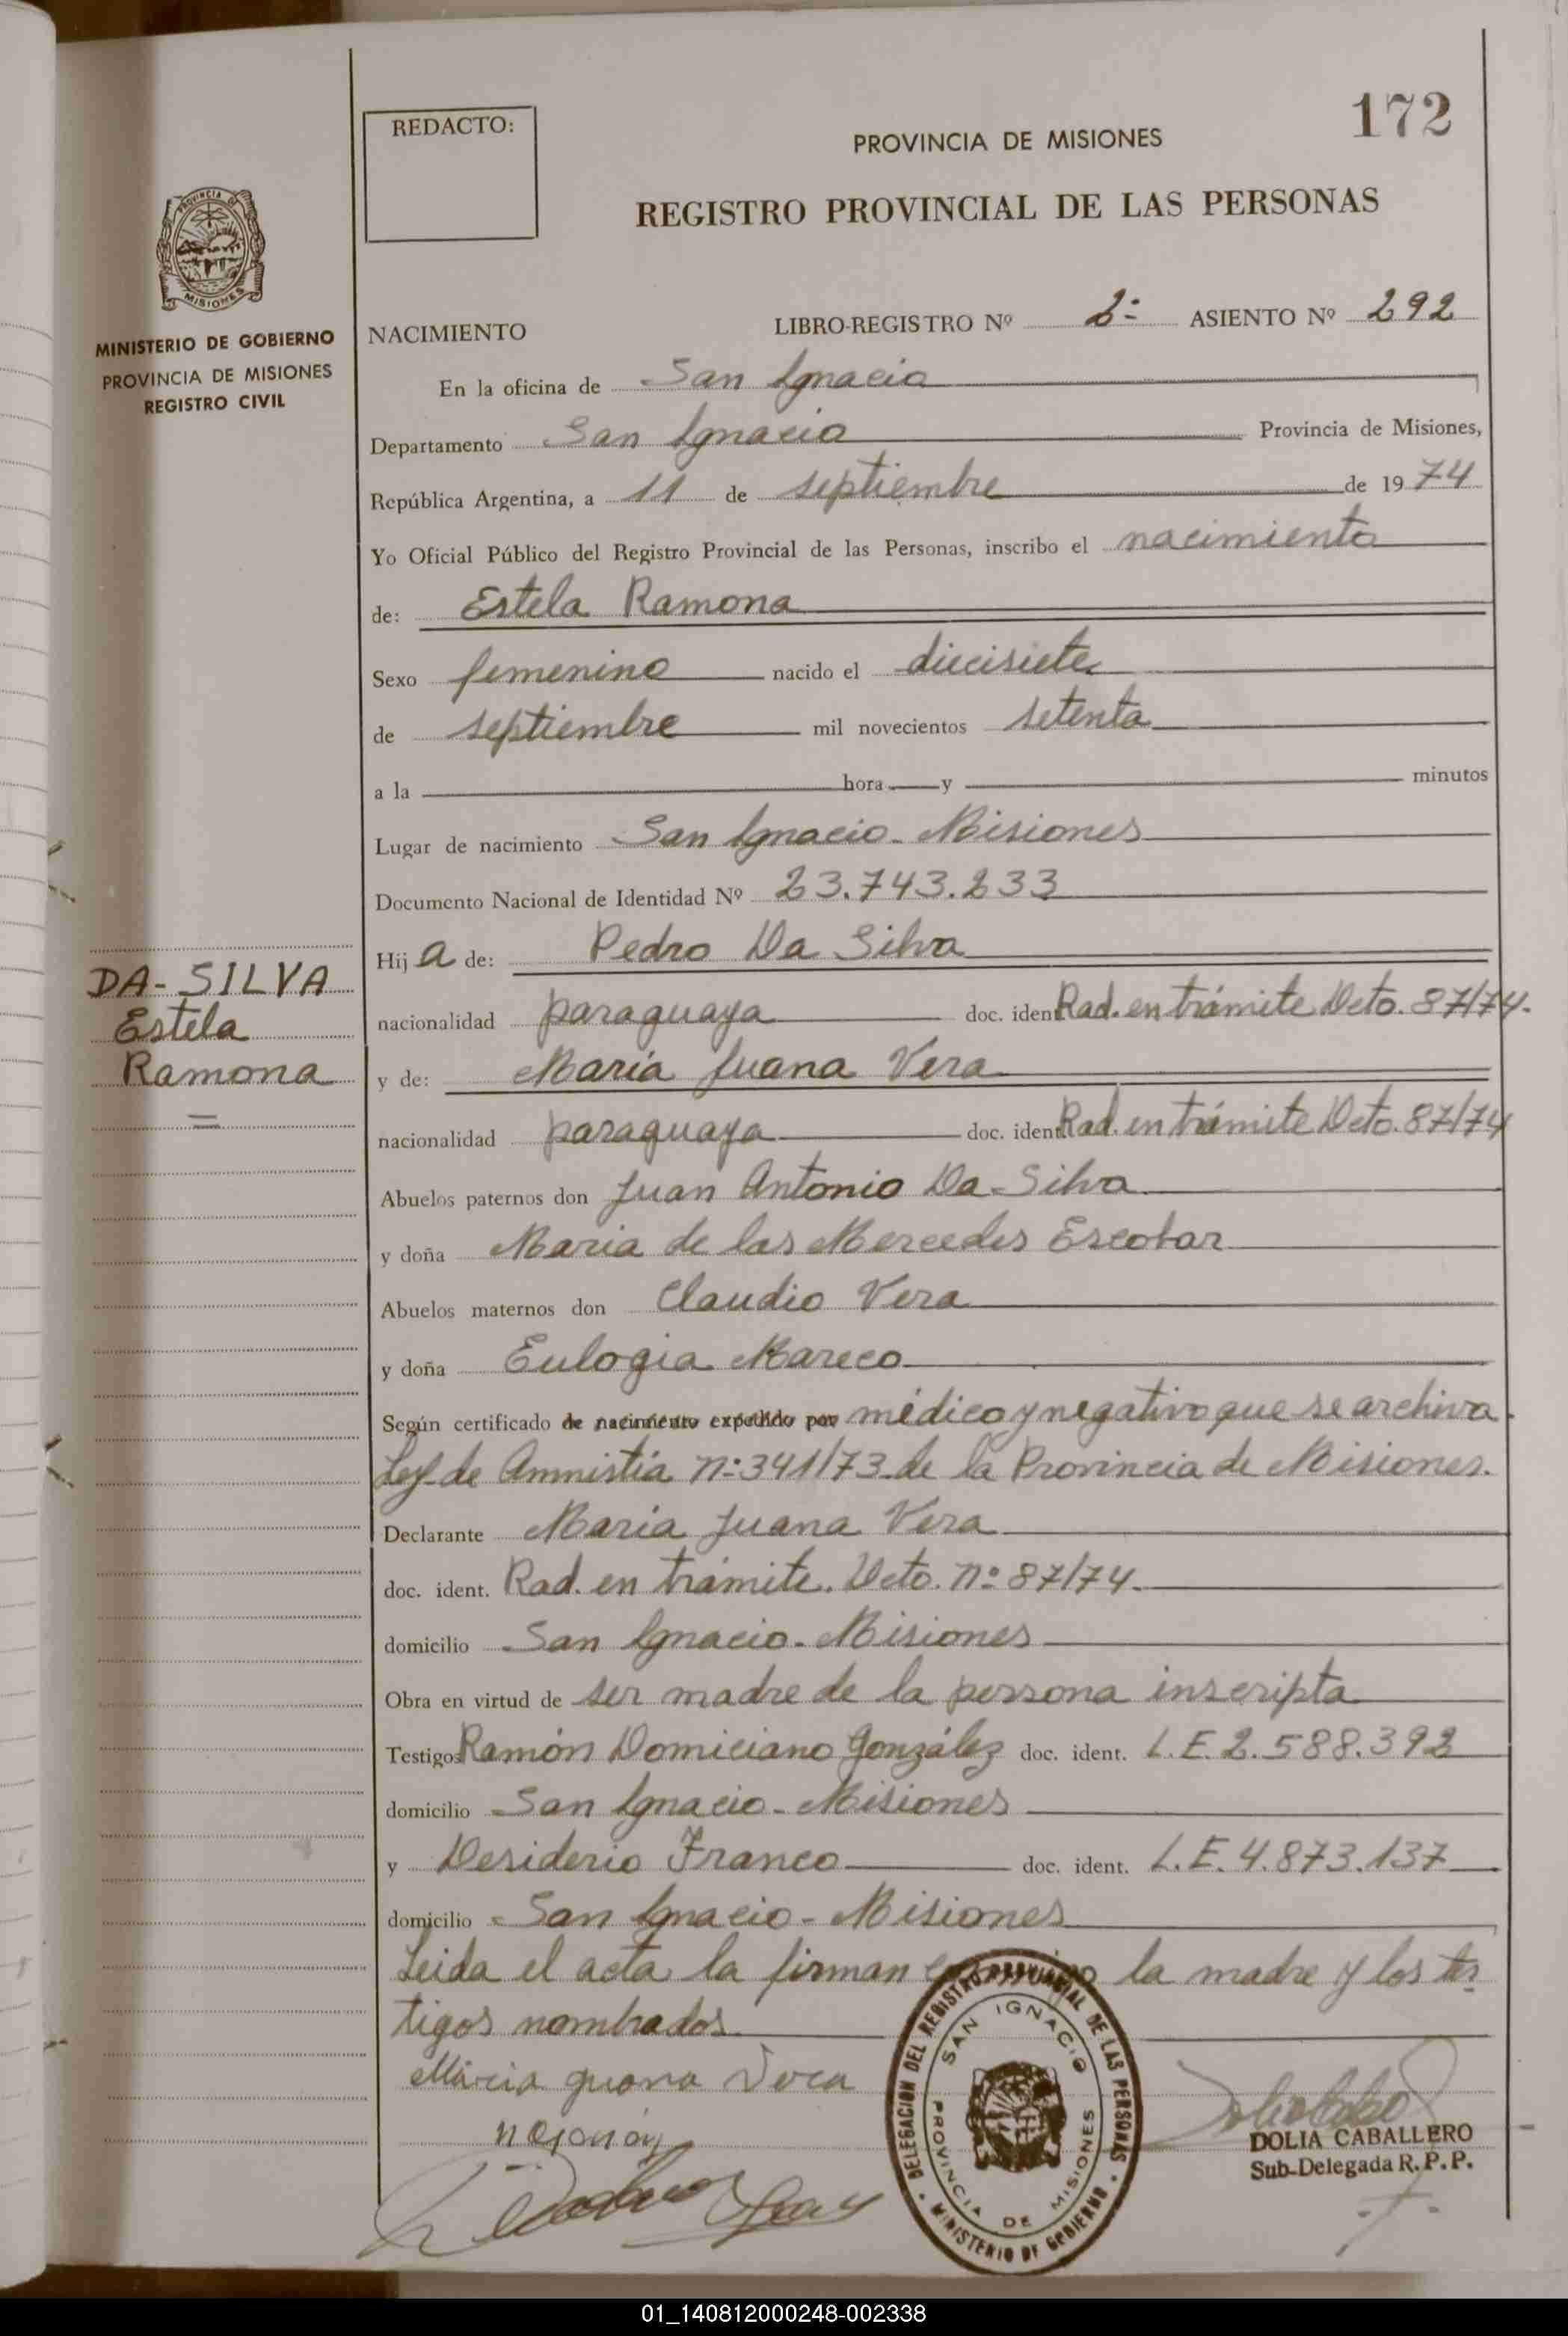 172
REDACTO:
PROVINCIA DE MISIONES
REGISTRO PROVINCIAL DE LAS PERSONAS
PROVINCIA DE
MISIONES
MINISTERIO DE GOBIERNO
PROVINCIA DE MISIONES
REGISTRO CIVIL
NACIMIENTO LIBRO-REGISTRO Nº 2- ASIENTO Nº 292
En la oficina de San Ignacio
Departamento San Ignacio Provincia de Misiones,
República Argentina, a 11 de septiembre de 1974
Yo Oficial Público del Registro Provincial de las Personas, inscribo el nacimiento
de: Estela Ramona
Sexo femenino nacido el diecisiete
de septiembre mil novecientos setenta
a la hora y minutos
Lugar de nacimiento San Ignacio - Misiones
Documento Nacional de Identidad Nº 23.743.233
Hij a de: Pedro Da Silva
DA-SILVA
Estela
Ramona
nacionalidad paraguaya doc. ident Rad. en trámite Dcto. 87/74.
y de: María Juana Vera
nacionalidad paraguaya doc. ident Rad. en trámite Dcto. 87/74
Abuelos paternos don Juan Antonio Da-Silva
y doña Maria de las Mercedes Escobar
Abuelos maternos don Claudio Vera
y doña Eulogia Mareco
Según certificado de nacimiento expedido por médico y negativo que se archiva.
Ley de Amnistía nº 341/73 de la Provincia de Misiones.
Declarante María Juana Vera
doc. ident. Rad. en trámite. Dcto. nº 87/74.
domicilio San Ignacio - Misiones
Obra en virtud de ser madre de la persona inscripta
Testigos Ramón Domiciano González doc. ident. L.E. 2.588.392
domicilio San Ignacio - Misiones
y Desiderio Franco doc. ident. L.E. 4.873.137
domicilio San Ignacio - Misiones
Leida el acta la firman la madre y los tes
tigos nombrados
María Juana Vera
DELEGACION DEL REGISTRO PROVINCIAL DE LAS PERSONAS
MINISTERIO DE GOBIERNO
SAN IGNACIO
PROVINCIA DE MISIONES
DOLIA CABALLERO
Sub-Delegada R.P.P.
01_140812000248-002338